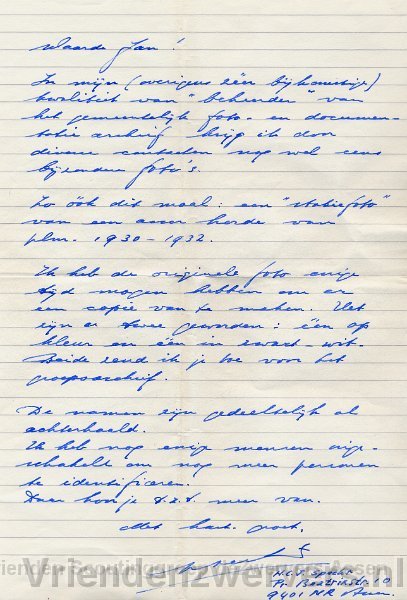 Waarde Jan!
In mijn (overigens zéér bijkomstige)
kwaliteit van "beheerder" van
het gemeentelijk foto- en documen-
tatie archief krijg ik door
diverse contacten nog wel eens
bijzondere foto's.
Zo óók dit maal: een "statiefoto"
van een horde van
plm. 1930-1932.
Ik heb de originele foto enige
tijd mogen hebben om er
een copie van te maken. Het
zijn er twee geworden: één op
kleur en één in zwart-wit.
Beide zend ik je toe voor het
groepsarchief.
De namen zijn gedeeltelijk al
achterhaald.
Ik heb nog enige mensen inge-
schakeld om nog meer personen
te identificeren.
Daar hoor je t.z.t. meer van.
Met hart. groet.
Pr. 10
9401 Assen
Vriendenzwervers.nl